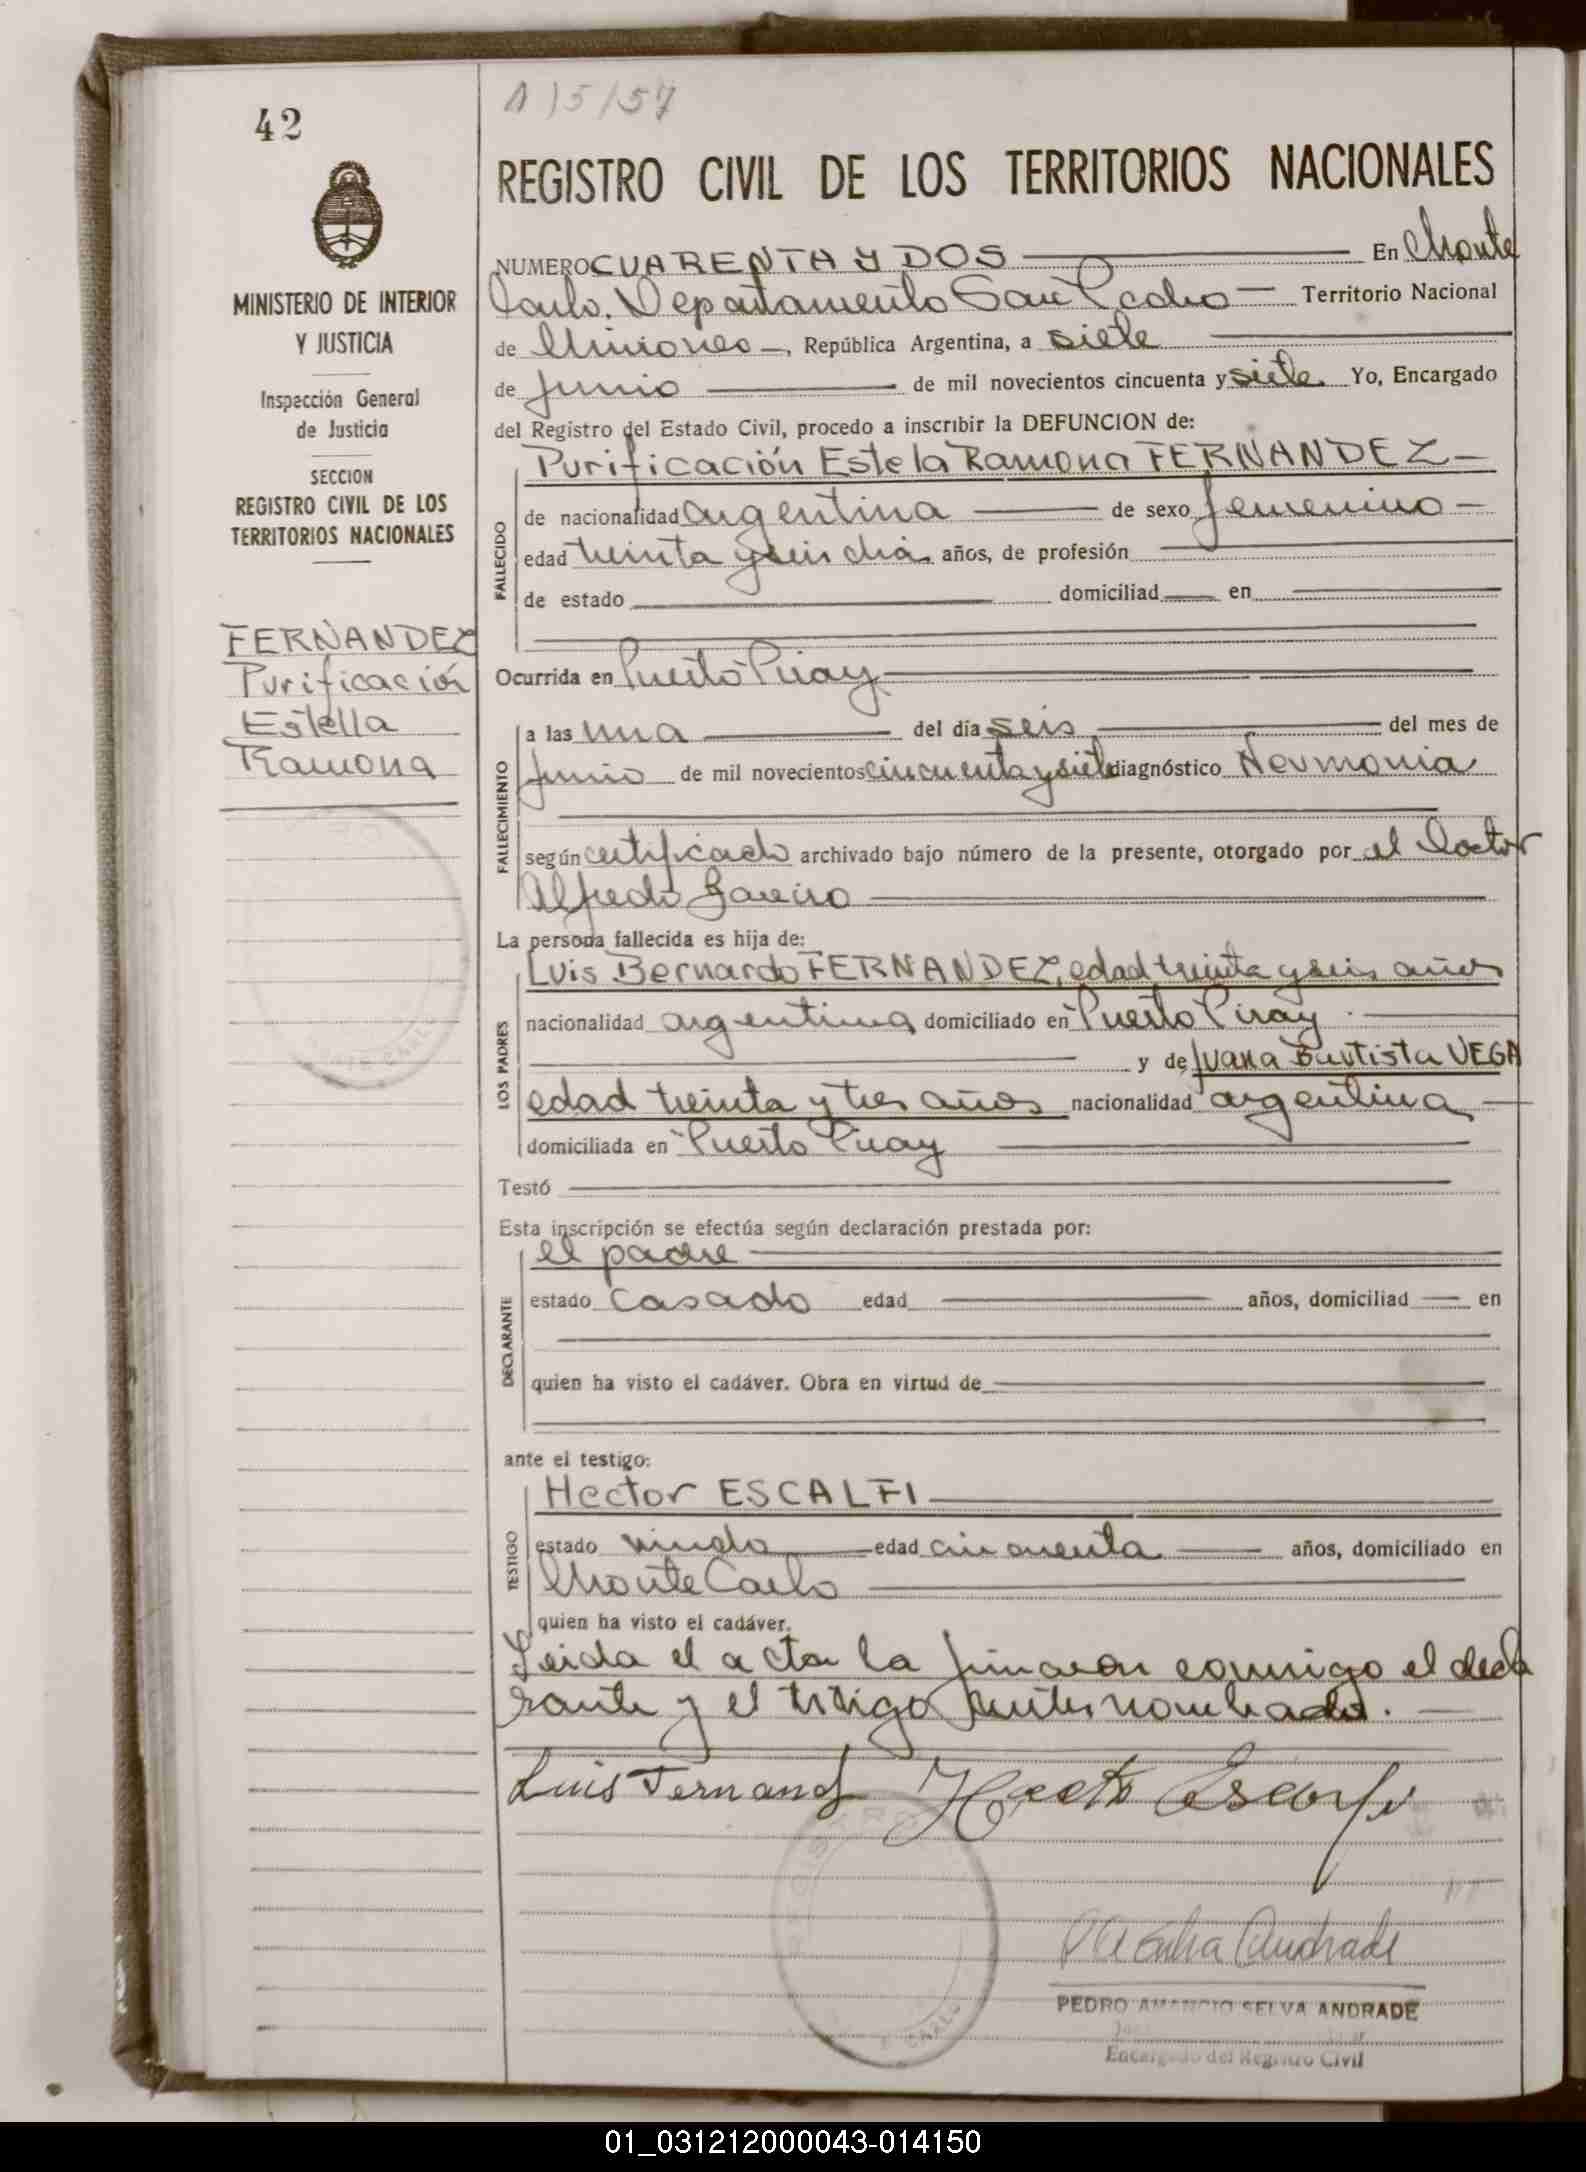 42
A)5/57
MINISTERIO DE INTERIOR
Y JUSTICIA
Inspección General
de Justicia
SECCION
REGISTRO CIVIL DE LOS
TERRITORIOS NACIONALES
FERNANDEZ
Purificación
Estella
Ramona
REGISTRO CIVIL DE LOS TERRITORIOS NACIONALES
NUMERO CUARENTA Y DOS En Monte
Carlo. Departamento San Pedro Territorio Nacional
de Misiones, República Argentina, a siete
de junio de mil novecientos cincuenta y siete. Yo, Encargado
del Registro del Estado Civil, procedo a inscribir la DEFUNCION de:
Purificación Estela Ramona FERNANDEZ
FALLECIDO
de nacionalidad argentina de sexo femenino
edad treinta y seis días años, de profesión
de estado domiciliad en
Ocurrida en Puerto Piray
FALLECIMIENTO
a las una del día seis del mes de
junio de mil novecientos cincuenta y siete diagnóstico Neumonia
según certificado archivado bajo número de la presente, otorgado por el Doctor
Alfredo
La persona fallecida es hija de:
LOS PADRES
Luis Bernardo FERNANDEZ, edad treinta y seis años
nacionalidad argentina domiciliado en Puerto Piray
y de Juana Bautista VEGA
edad treinta y tres años nacionalidad argentina
domiciliada en Puerto Piray
Testó
Esta inscripción se efectúa según declaración prestada por:
DECLARANTE
el padre
estado casado edad años, domiciliad en
quien ha visto el cadáver. Obra en virtud de
ante el testigo:
TESTIGO
Hector ESCALFI
estado viudo edad cincuenta años, domiciliado en
Monte Carlo
quien ha visto el cadáver.
Leida el acta la firmaron conmigo el decla
rante y el testigo antes nombrado.
Luis Fernand
PEDRO AMANCIO SELVA ANDRADE
Encargado del Registro Civil
01_031212000043-014150